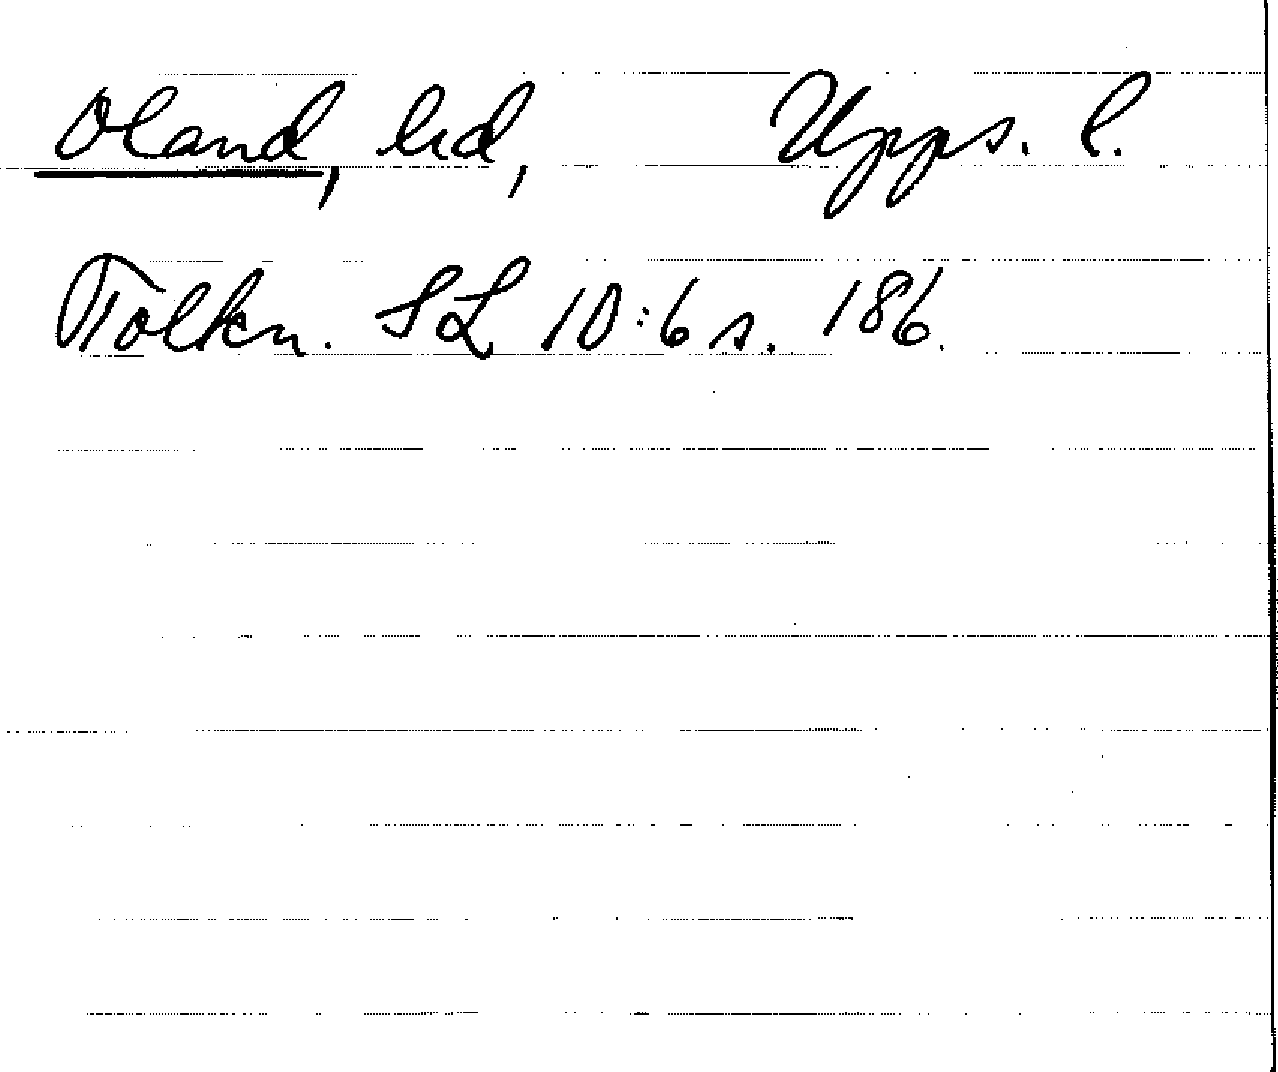 Oland, hd, Upps. l.
Tolkn. SL 10:6 s. 186.